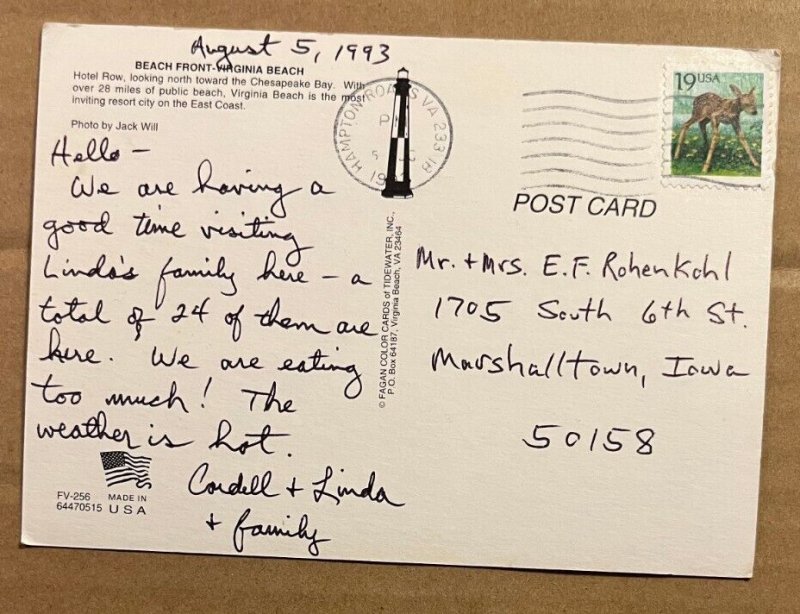 August 5, 1993
BEACH FRONT-VIRGINIA BEACH
Hotel Row, looking north toward the Chesapeake Bay. With
over 28 miles of public beach, Virginia Beach is the most
inviting resort city on the East Coast.
Photo by Jack Will
Hello —
We are having a
good time visiting
Linda's family here — a
total of 24 of them are
here. We are eating
too much! The
weather is hot.
Cordell + Linda
+ family
FV-256
64470515
MADE IN
USA
© FAGAN COLOR CARDS of TIDEWATER, INC.,
P.O. Box 64187, Virginia Beach, VA 23464
HAMPTON ROADS VA 233
PM
5
19
19 USA
POST CARD
Mr. + Mrs. E.F. Rohenkohl
1705 South 6th St.
Marshalltown, Iowa
50158